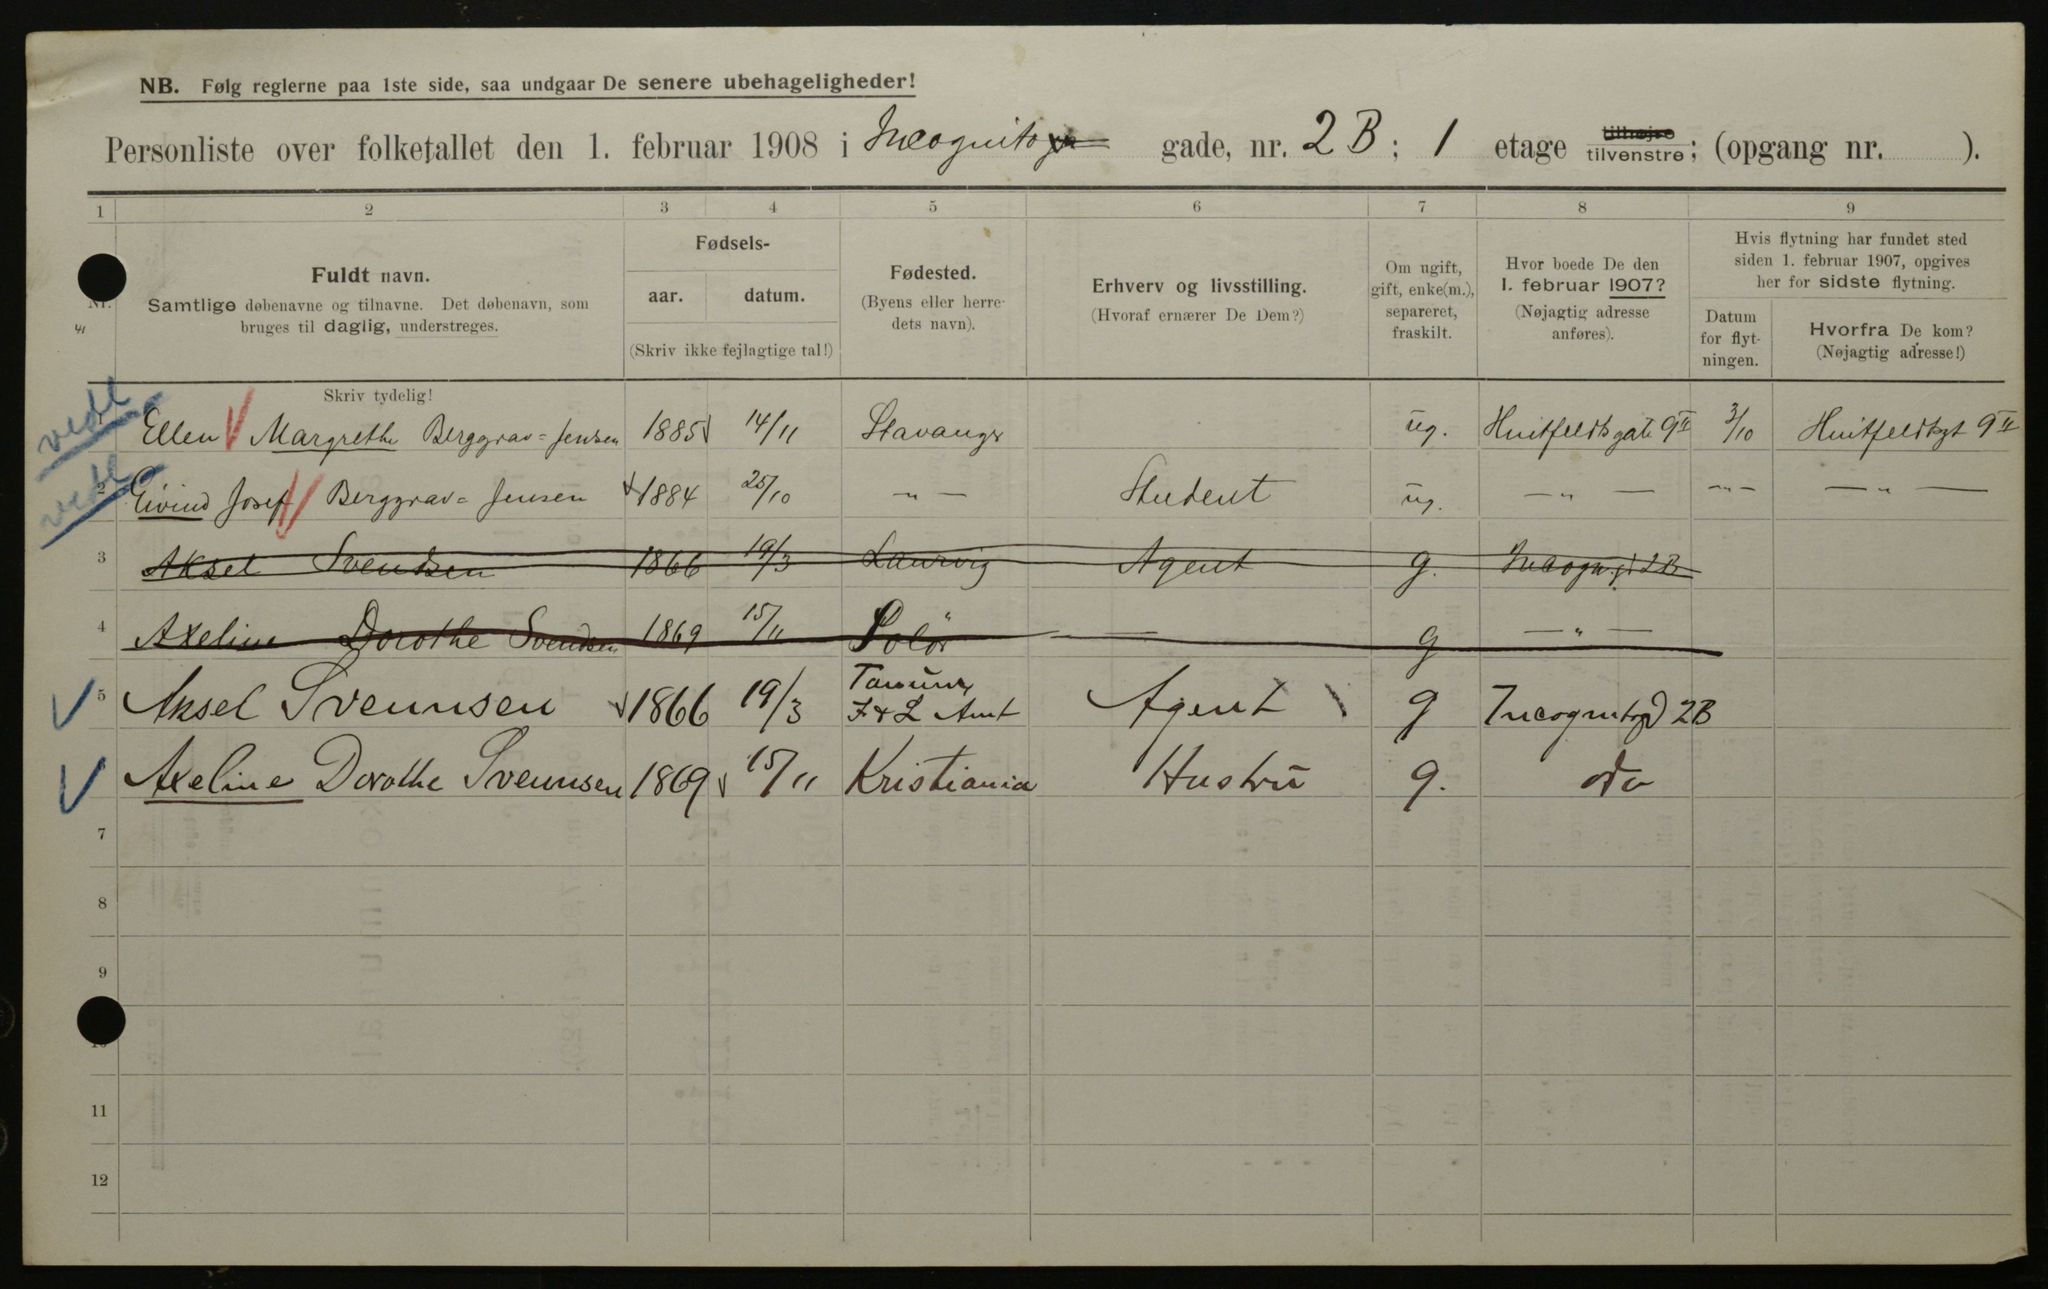 NB. Følg reglerne paa 1ste side, saa undgaar De senere ubehageligheder!
Personliste over folketallet den 1. februar 1908 i Incognito gade, nr. 2B; 1 etage tilhøjre tilvenstre; (opgang nr. ).
1 2 3 4 5 6 7 8 9
Nr.
Fuldt navn.
Samtlige døbenavne og tilnavne. Det døbenavn, som
bruges til daglig, understreges.
Skriv tydelig!
Fødsels-
aar. datum.
(Skriv ikke fejlagtige tal!)
Fødested.
(Byens eller herre-
dets navn).
Erhverv og livsstilling.
(Hvoraf ernærer De Dem?)
Om ugift,
gift, enke(m.),
separeret,
fraskilt.
Hvor boede De den
1. februar 1907?
(Nøjagtig adresse
anføres).
Hvis flytning har fundet sted
siden 1. februar 1907, opgives
her for sidste flytning.
Datum
for flyt-
ningen.
Hvorfra De kom?
(Nøjagtig adresse!)
vedl Ellen Margrethe Berggrav-Jensen 1885 14/11 Stavanger ug. Huitfeldtsgate 9 II 3/10 Huitfeldtsgt 9 II
vedl 2 Eivind Josef Berggrav-Jensen 1884 25/10 — " — Student ug. — " — — " — — " —
3 Aksel Svendsen 1866 19/3 Laurvig Agent g. Incogn.gt 2B
4 Axeline Dorothe Svendsen 1869 15/11 Solör — g — " —
5 Aksel Svennsen 1866 19/3 Tanum, J & L Amt Agent g Incognitogd 2B
Axeline Dorothe Svennsen 1869 15/11 Kristiania Hustru g. do
7
8
9
10
11
12